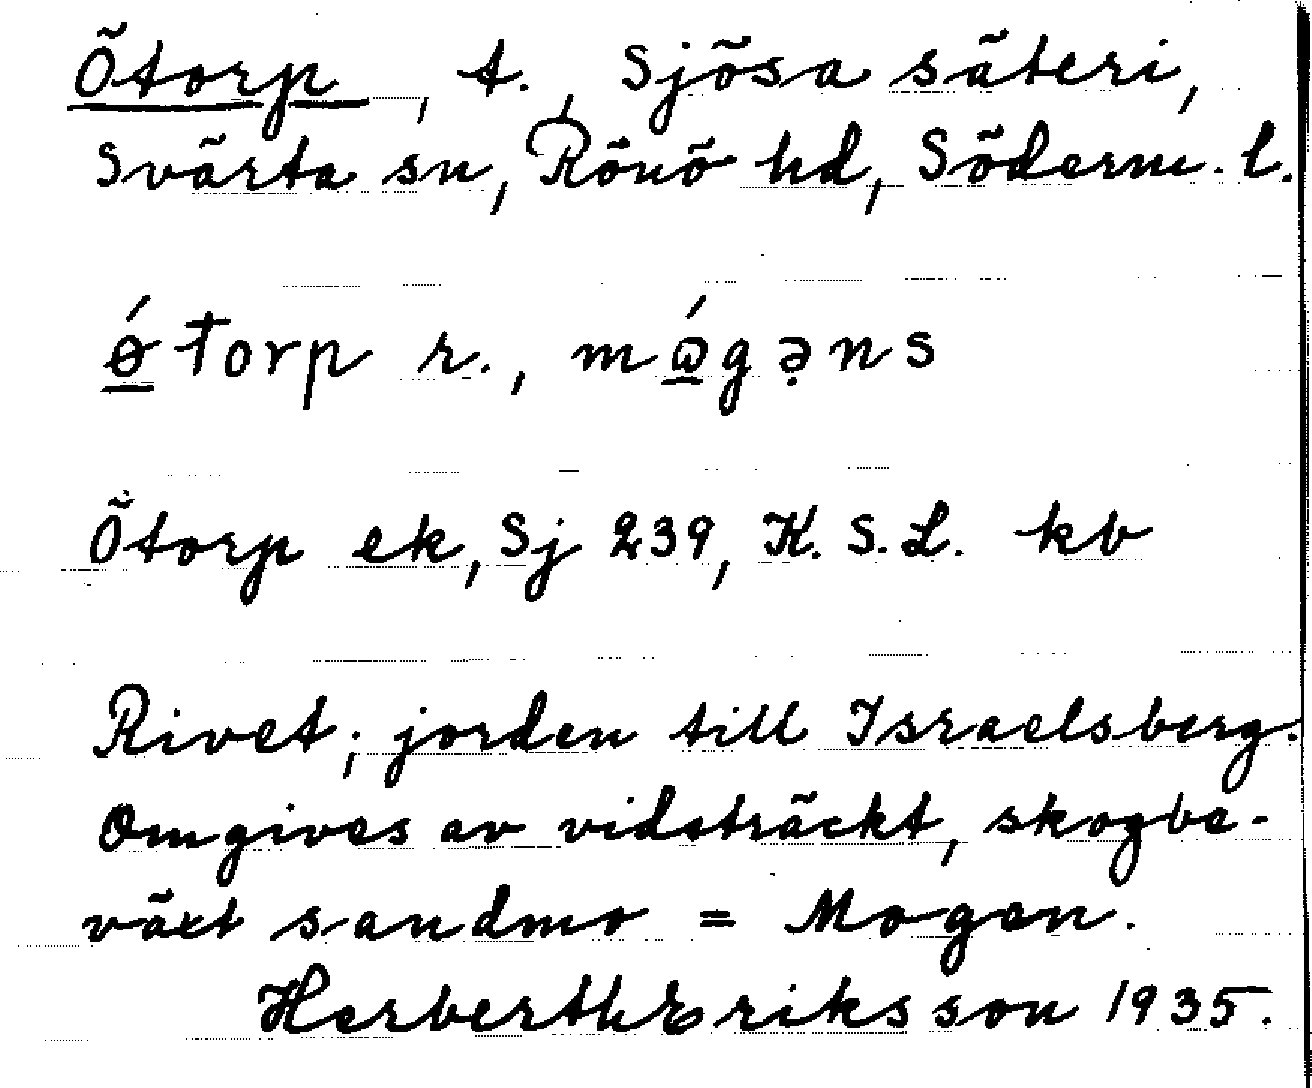 Ötorp, t., Sjösa säteri,
Svärta sn, Rönö hd, Söderm. l.
ǿtorp r., mǫ́gə̣ns
Ötorp ek, Sj 239, K. S. L. kb
Rivet; jorden till Israelsberg.
Omgives av vidsträckt, skogbe-
växt sandmo = Mogen.
Herberth Eriksson 1935.